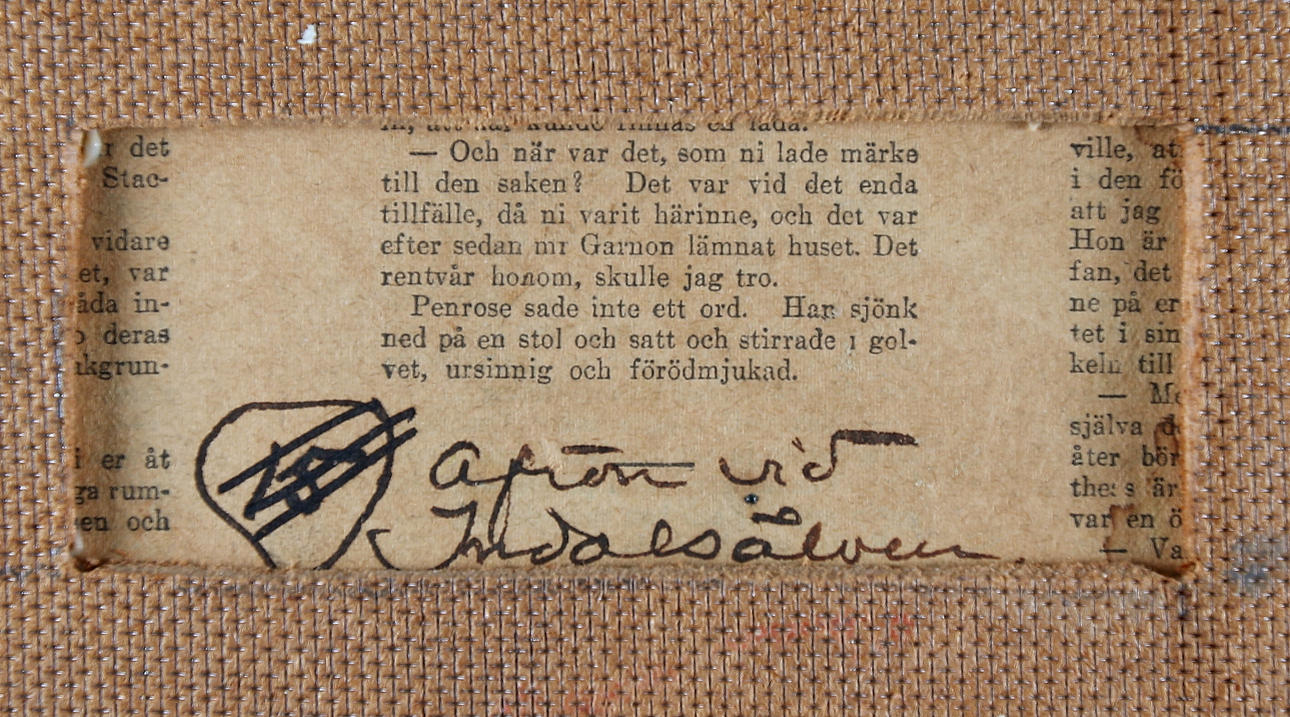 det
Stac-
vidare
et, var
åda in-
deras
er åt
rum-
och
— Och när var det, som ni lade märke
till den saken? Det var vid det enda
tillfälle, då ni varit härinne, och det var
efter sedan mr Garnon lämnat huset. Det
rentvår honom, skulle jag tro.
Penrose sade inte ett ord. Han sjönk
ned på en stol och satt och stirrade i gol-
vet, ursinnig och förödmjukad.
Afton vid
Indalsälven
ville, at
i den fö
att jag
Hon är
fan, det
ne på er
tet i sin
keln till
—
själva
åter bör
är
en ö
— Va